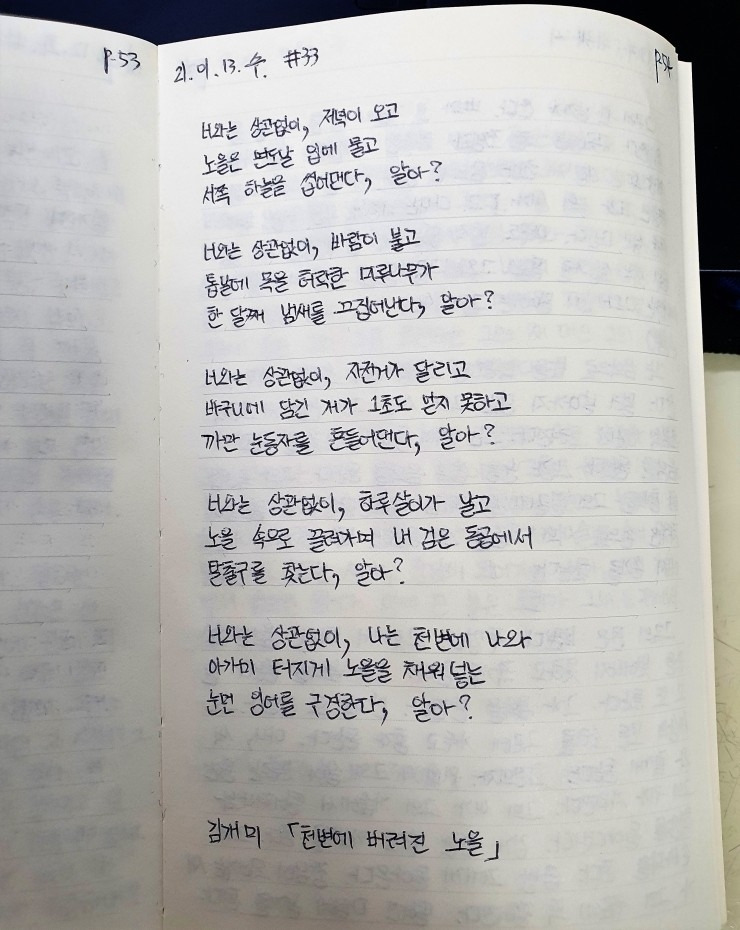 P.53
21.01.13.수. #33
P.54
너와는 상관없이, 저녁이 오고
노을은 면도날 입에 물고
서쪽 하늘을 씹어댄다, 알아?
너와는 상관없이, 바람이 불고
톱날에 목을 허락한 미루나무가
한 달째 냄새를 끄집어낸다, 알아?
너와는 상관없이, 자전거가 달리고
바구니에 담긴 개가 1초도 믿지 못하고
까만 눈동자를 흔들어댄다, 알아?
너와는 상관없이, 하루살이가 날고
노을 속으로 끌려가며 내 검은 동공에서
탈출구를 찾는다, 알아?
너와는 상관없이, 나는 천변에 나와
아가미 터지게 노을을 채워 넣는
눈먼 잉어를 구경한다, 알아?
김개미 「천변에 버려진 노을」